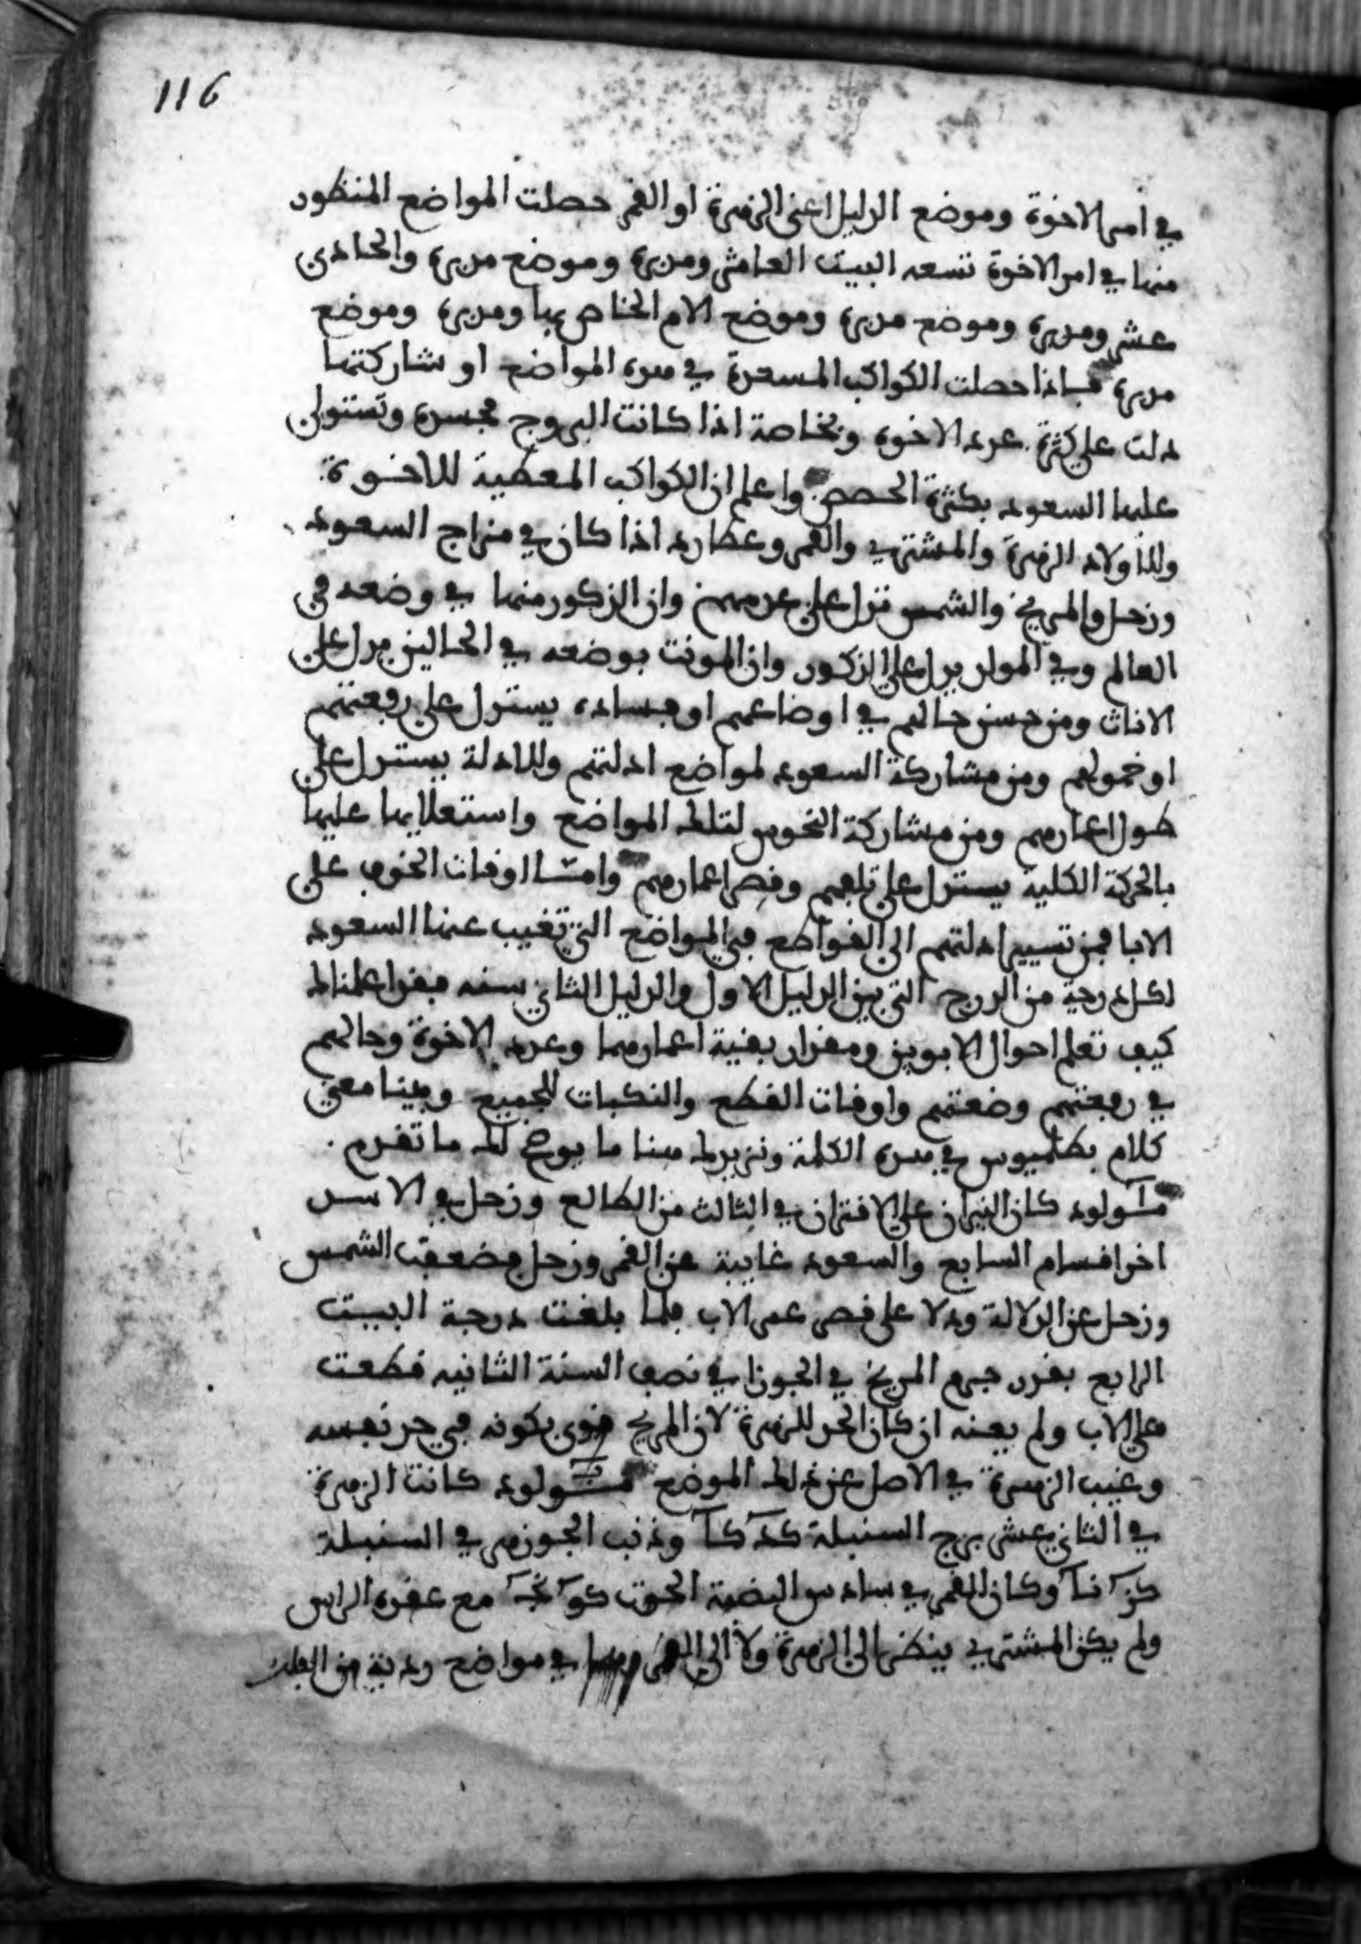 116
في امر الاخوة وموضع الدليل اعني الزهرة او القمر حصلت المواضع المنظور
منها في امر الاخوة تسعه البيت العاشر ومدبره وموضع مدبره والحادي
عشر ومدبره وموضع مدبره وموضع الام الخاص بها ومدبره وموضع
مدبره فاذا حصلت الكواكب المسعدة في هده المواضع او شاركتها
دلت على كثرة عدد الاخوه وبخاصة اذا كانت البروج مجسده وتستولي
عليها السعود بكثرة الحصص واعلم ان الكواكب المعطية للاخوة
وللاولاد الزهرة والمشتري والقمر وعطارد اذا كان في مزاج السعود
وزحل والمريخ والشمس تدل على عدمهم وان الذكور منها في وضعه في
العالم وفي المولد يدل على الذكور وان المونث بوضعه في الحالين يدل على
الاناث ومن حسن حالهم في اوضاعهم او فساده يستدل على رفعتهم
او خمولهم ومن مشاركة السعود لمواضع ادلتهم وللادلة يستدل على
طول اعمارهم ومن مشاركة النحوس لتلك المواضع واستعلايها عليها
بالحركة الكلية يستدل على تلفهم وقصر اعمارهم وامـا اوقات الخوف على
الابا فمن تسيير ادلتهم الى القواطع في المواضع التي تغيب عنها السعود
لكل درجة من الدرج التي بين الدليل الاول والدليل الثاني سنه فقد اعلمناك
كيف تعلم احوال الابوين ومقدار بقية اعمارهما وعدد الاخوة وحالهم
في رفعتهم وضعتهم واوقات القطع والنكبات للجميع وبينا معنى
كلام بطلميوس في هده الكلمة ونزيدك هنا ما يوضح لك ما تقدم .
مـولود كان النيران على الاقتران في الثالث من الطالع وزحل في الاسد
اخر اقسام السابع والسعود غايبة عن القمر وزحل فضعفت الشمس
وزحل عن الدلالة ودلا على قصر عمر الاب فلما بلغت درجة البيت
الرابع بعدد جرم المريخ في الجوزا في نصف السنة الثانيه قطعت
على الاب ولم يعنه ان كان الحد للزهرة لان المريخ قوي بكونه في حد نفسه
وغيب الزهرة في الاصل عن ذلك الموضع مـولود كانت الزهرة
في الثاني عشر برج السنبلة كد كا وذنب الجوزهر في السنبلة
كز نا وكان القمر في سادس البضة الحوت كو نجـ مع عقدة الراس
ولم يكن المشتري ينظر الى الزهرة ولا الى القمر وهما في مواضع ردية من الفلك